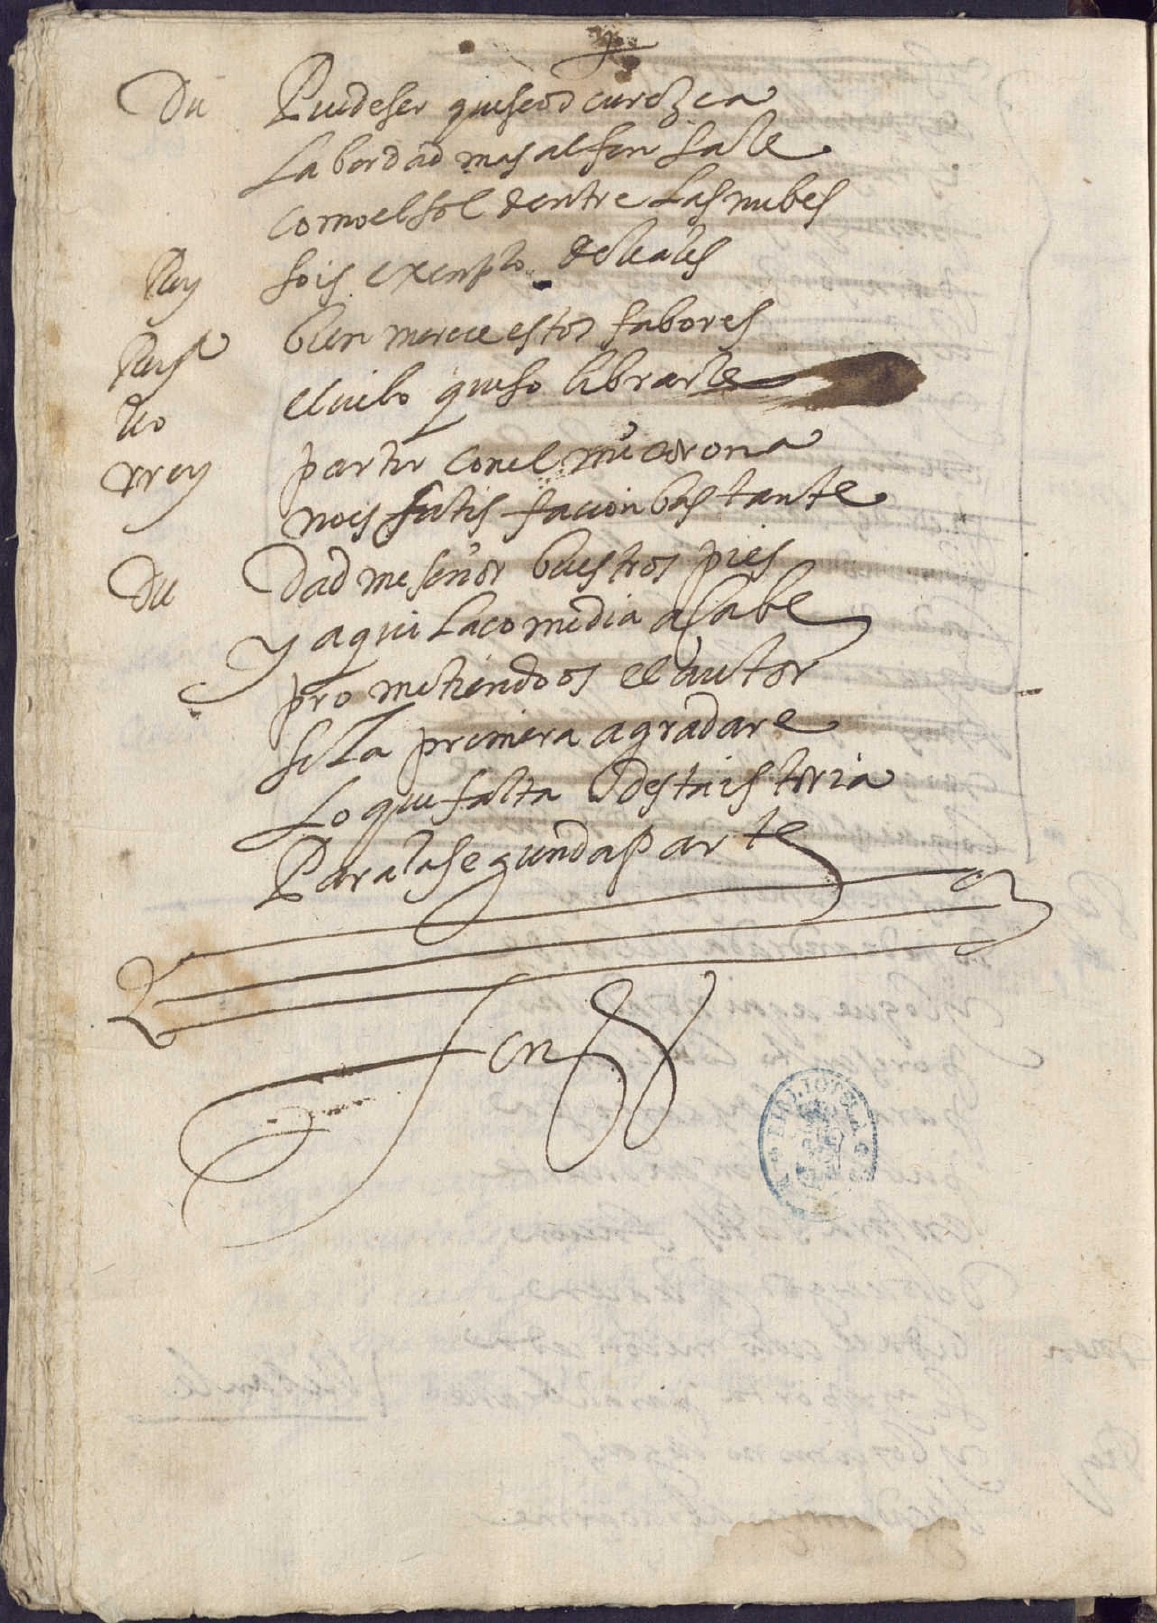 Du Puede ser que se oscurezca
La berdad mas al fin sale
como el sol dentre las nubes
Rey sois exenplo de leales
bien merece estos fabores
el cielo quiso librarle
rrey partir con el mi corona
no es satisfacion bastante
Du Dadme señor buestros pies
y aqui la comedia acabe
prometiendoos el autor
si la primera agradare
Lo que falta desta istoria
Para la segunda parte
fin
BIBLIOTECA